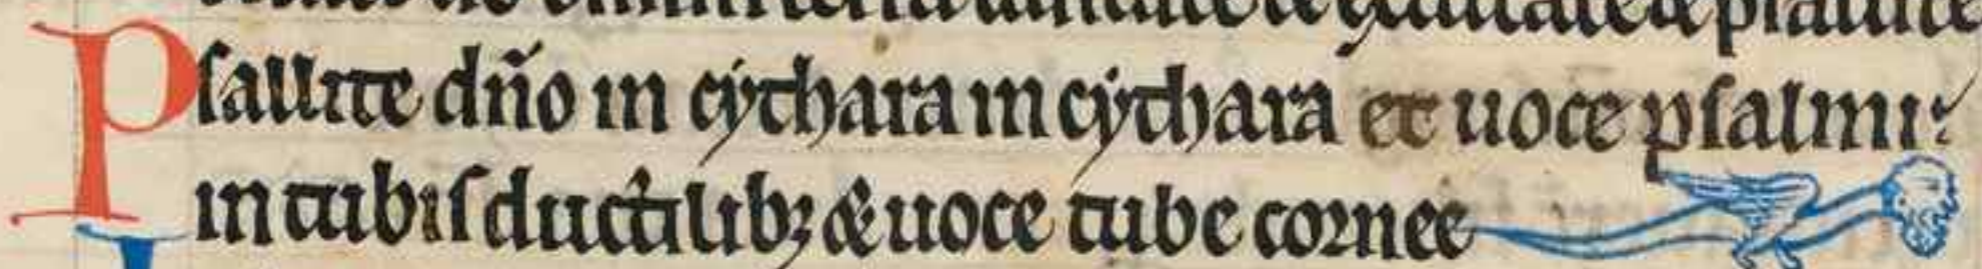 Psallite dño in cythara in cythara et uoce psalmi:
in tubis ductilibꝫ & uoce tube cornee